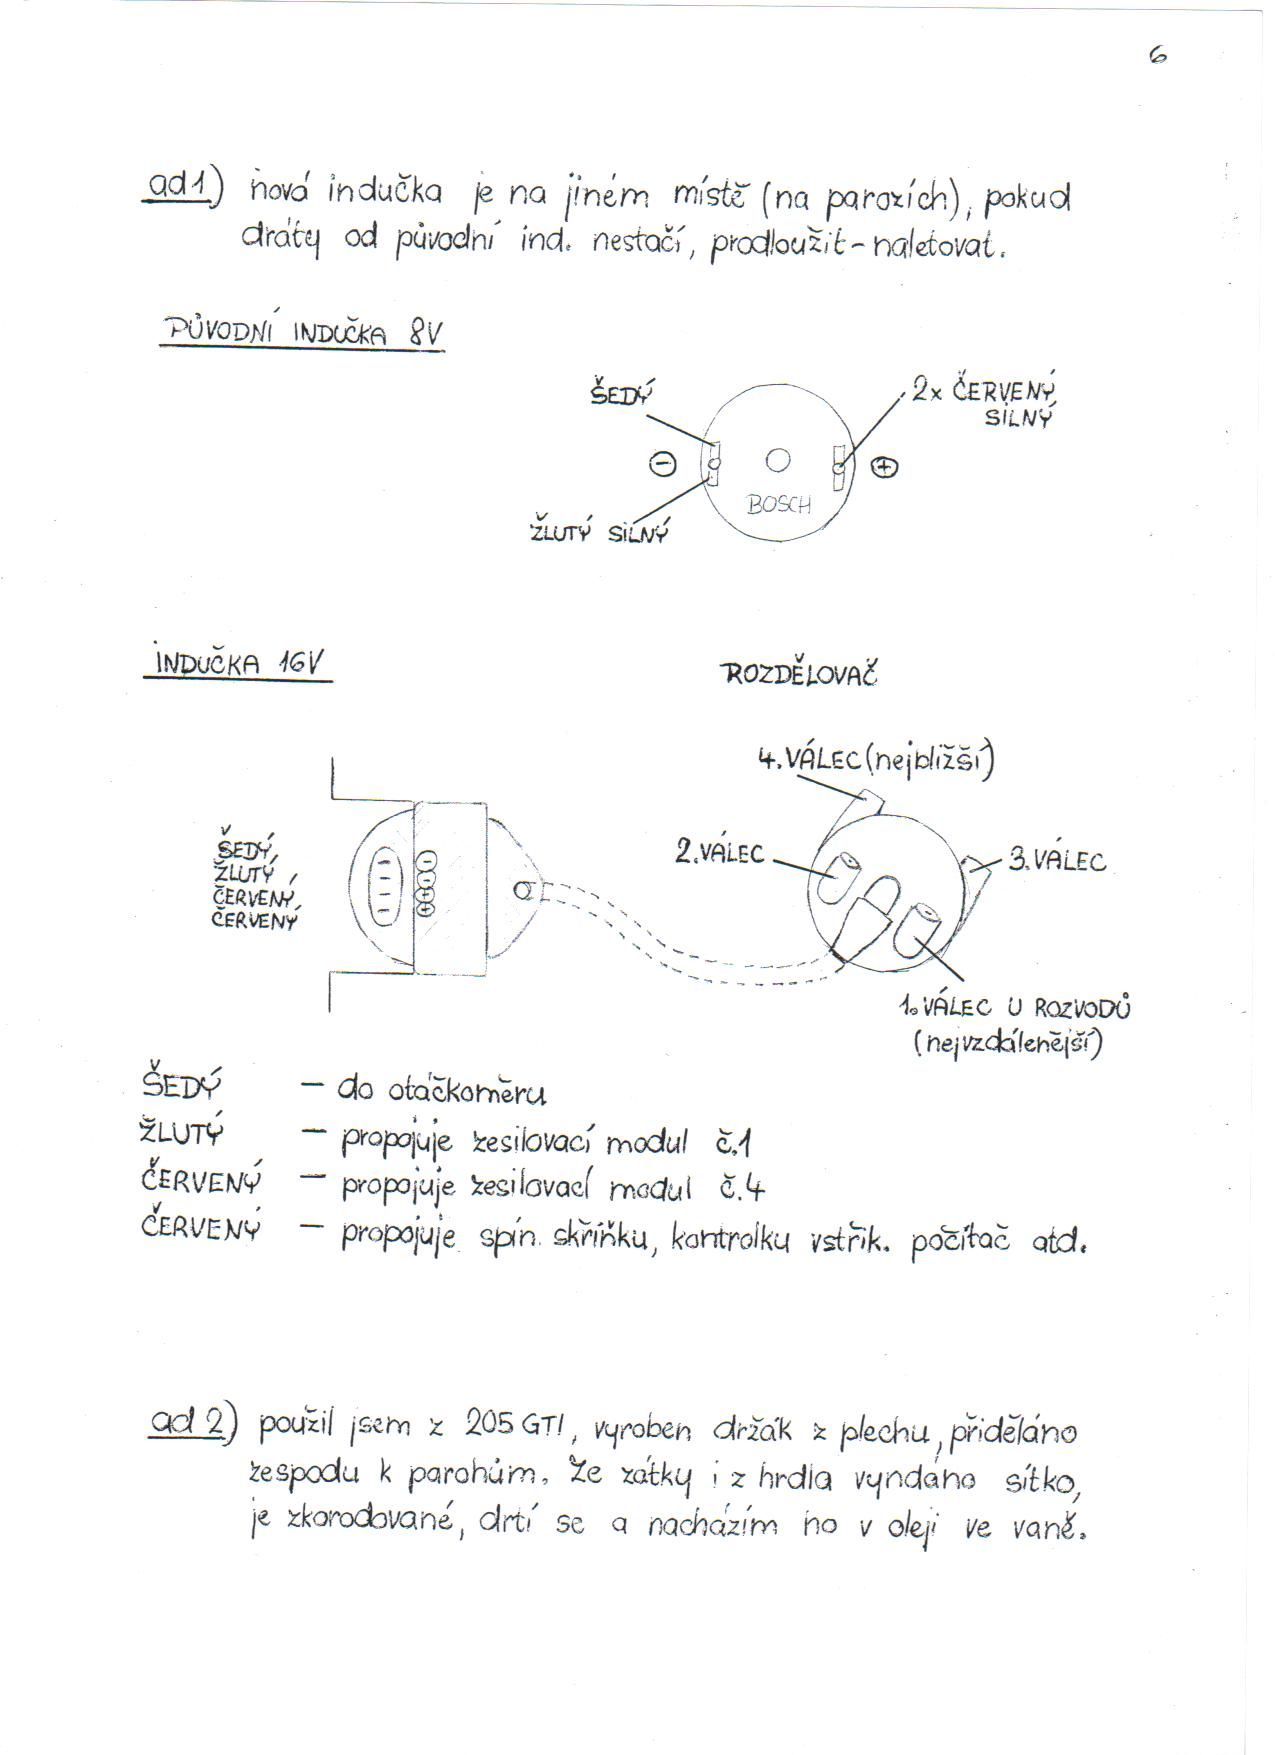 6
ad1) nová indučka je na jiném místě (na parozích), pokud
dráty od původní ind. nestačí, prodloužit-naletovat.
PŮVODNÍ INDUČKA 8V
ŠEDÝ
2x ČERVENÝ
SILNÝ
BOSCH
ŽLUTÝ SILNÝ
INDUČKA 16V
ROZDĚLOVAČ
4. VÁLEC (nejbližší)
2. VÁLEC
3. VÁLEC
ŠEDÝ,
ŽLUTÝ,
ČERVENÝ,
ČERVENÝ
1. VÁLEC U ROZVODŮ
(nejvzdálenější)
ŠEDÝ - do otáčkoměru
ŽLUTÝ - propojuje zesilovací modul č.1
ČERVENÝ - propojuje zesilovací modul č.4
ČERVENÝ - propojuje spín. skříňku, kontrolku vstřik. počítač atd.
ad 2) použil jsem z 205 GTI, vyroben držák z plechu, přiděláno
zespodu k parohům. Ze zátky i z hrdla vyndáno sítko,
je zkorodované, drtí se a nacházím ho v oleji ve vaně.